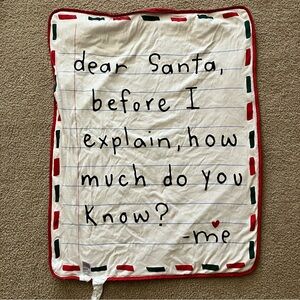 dear Santa,
before I
explain, how
much do you
know?
-me